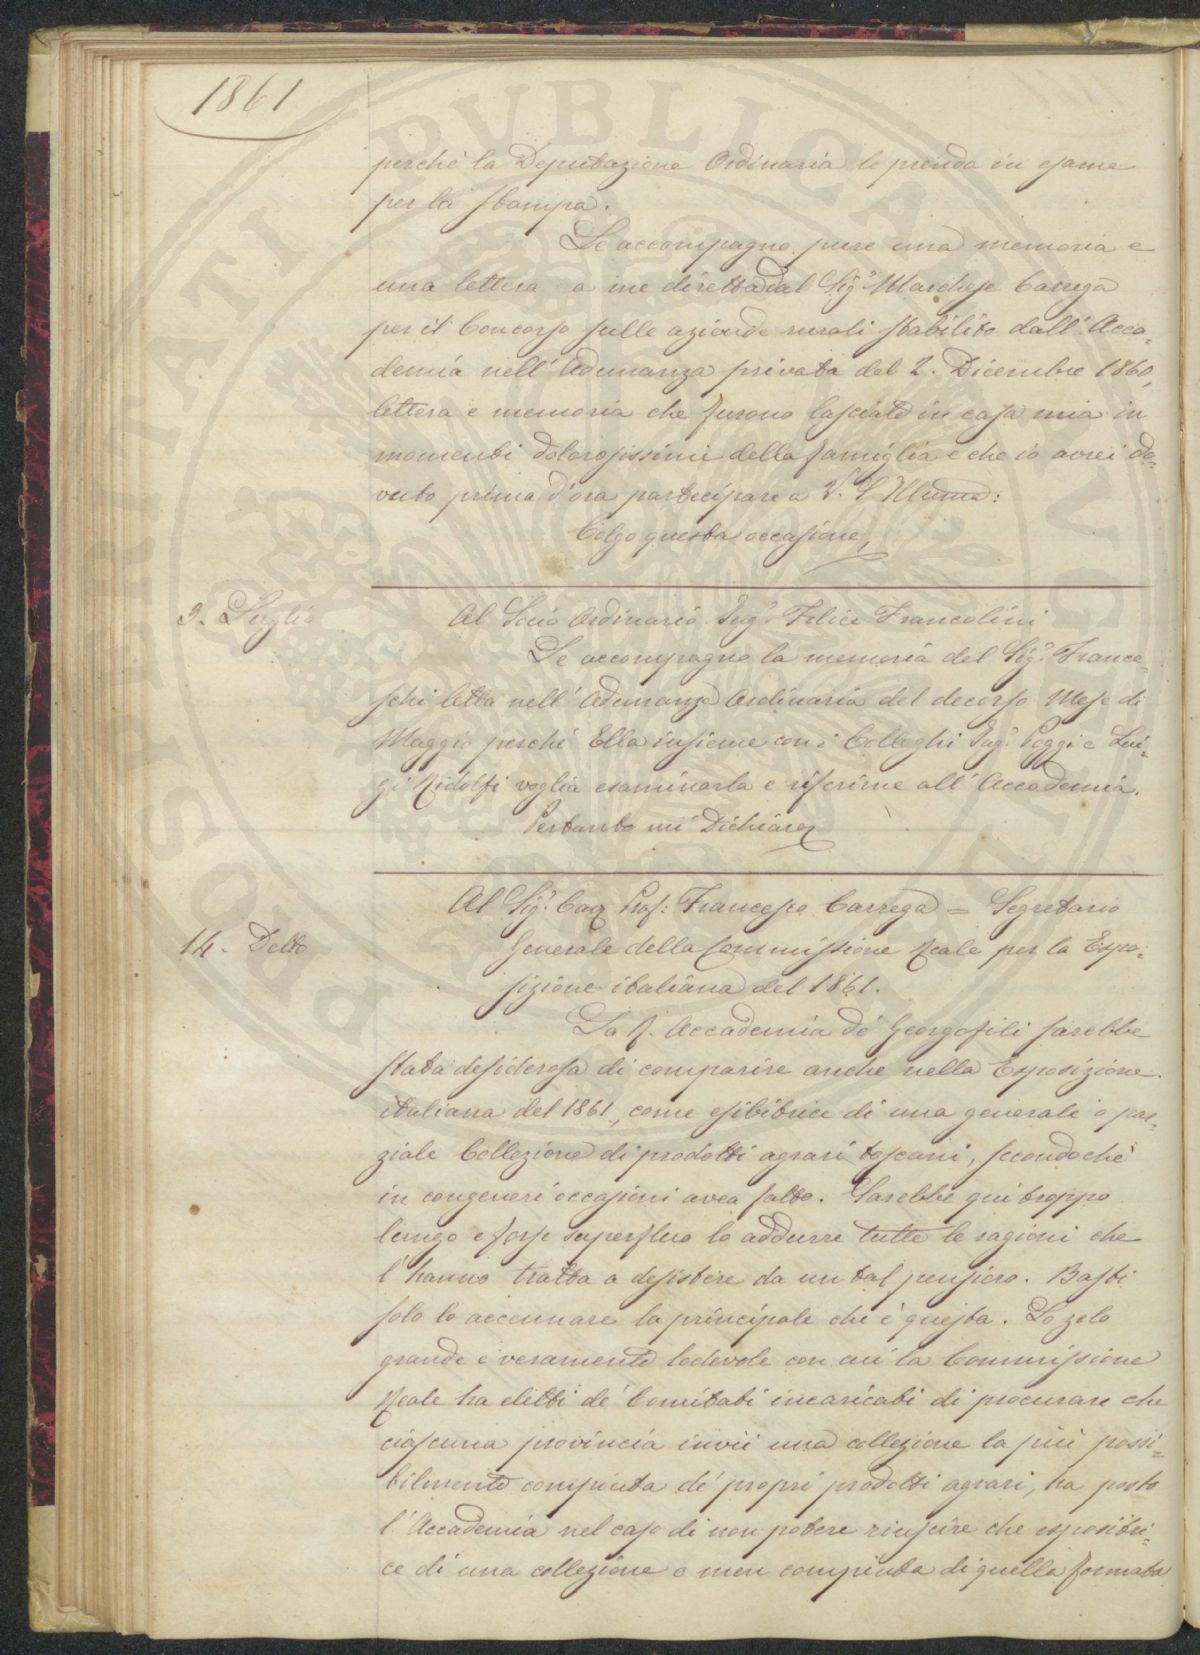 1861
perchè la Deputazione Ordinaria le prenda in esame
per la stampa.
Le accompagno pure una memoria e
una lettera a me diretta dal Sigr. Marchese Carrega
per il Concorso sulle aziende rurali stabilito dall' Acca-
demia nell' Adunanza privata del 2. Dicembre 1860,
lettera e memoria che furono lasciate in casa mia in
momenti dolorosissimi della famiglia e che io avrei do-
vuto prima d'ora partecipare a V. S. Illuma:
Colgo questa occasione,
9. Luglio
Al Socio Ordinario Ingr. Felice Francolini
Le accompagno la memoria del Sigr. France-
schi letta nell' Adunanza Ordinaria del decorso Mese di
Maggio perchè Ella insieme con i Colleghi Ingr. Poggi e Lui-
gi Ridolfi voglia esaminarla e riferirne all' Accademia.
Pertanto mi Dichiaro
14. Detto
Al Sigr. Cav. Prof: Francesco Carrega = Segretario
Generale della Commissione Reale per la Espo-
sizione italiana del 1861.
La R. Accademia de' Georgofili sarebbe
stata desiderosa di comparire anche nella Esposizione
italiana del 1861, come esibitrice di una generale o par-
ziale Collezione di prodotti agrari toscani, secondochè
in congeneri occasioni avea fatto. Sarebbe qui troppo
lungo e forse superfluo lo addurre tutte le ragioni che
l' hanno tratta a desistere da un tal pensiero. Basti
solo lo accennare la principale che è questa. Lo zelo
grande e veramente lodevole con cui la Commissione
Reale ha eletti de' Comitati incaricati di procurare che
ciascuna provincia invii una collezione la più possi-
bilmente compiuta de' propri prodotti agrari, ha posto
l' Accademia nel caso di non potere riuscire che espositri-
ce di una collezione o men compiuta di quella formata
POSTERITATI PVBLICA